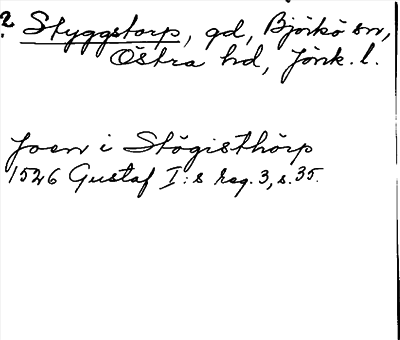 ? Styggstorp, gd, Björkö sn,
Östra hd, Jönk. l.
Joen i Stögisthörp
1526 Gustaf I:s reg. 3, s. 35.